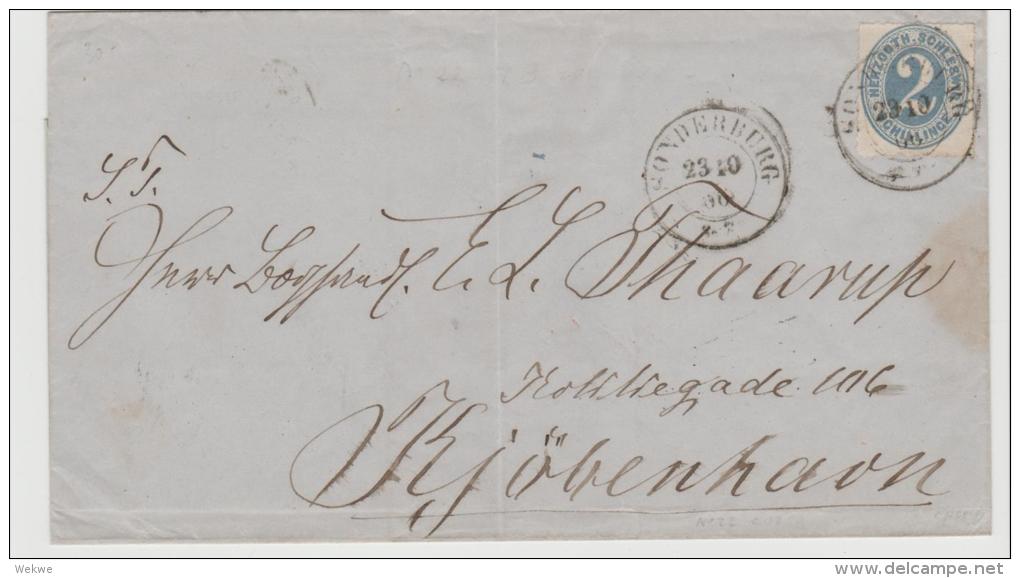 HERZOGTH. SCHLESWIG
2
SCHILLINGE
23 10
SONDERBURG
23 10
66
S. T.
Herr Boghandl. E. L. Thaarup
106
Kjöbenhavn
Wekwe
delcampe.net